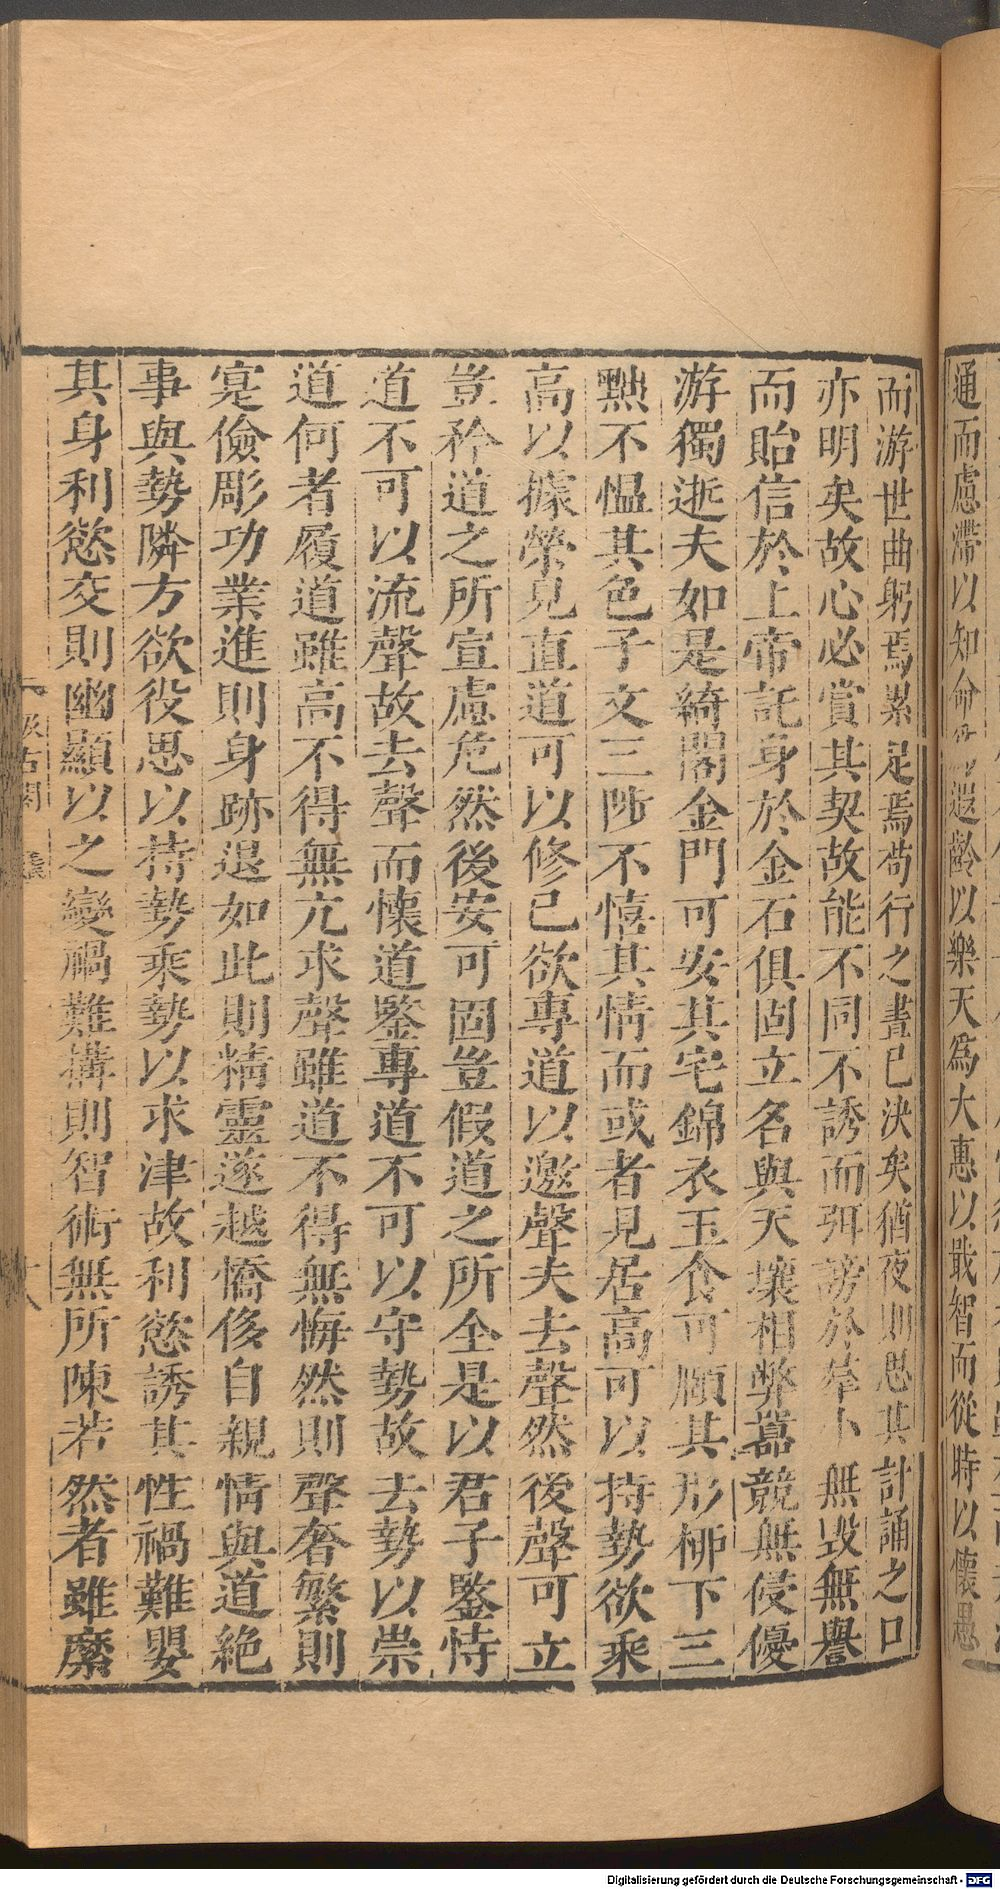 通而慮滯以知命爲遐齡以樂天爲大惠以戢智而從時以懷愚
而游世曲躬焉累足焉苟行之晝已決矣猶夜則思其計誦之口
亦明矣故心必賞其契故能不同不誘而弭謗於羣卜無毁無譽
而貽信於上帝託身於金石俱固立名與天壤相弊囂競無侵優
游獨逝夫如是綺閣金門可安其宅錦衣玉食可頤其形柳下三
黜不愠其色子文三陟不憘其情而或者見居高可以持勢欲乘
高以據榮見直道可以修已欲專道以邀聲夫去聲然後聲可立
豈矜道之所宣慮危然後安可固豈假道之所全是以君子鑒恃
道不可以流聲故去聲而懷道鑒專道不可以守勢故去勢以崇
道何者履道雖高不得無亢求聲雖道不得無悔然則聲奢繁則
寔儉彫功業進則身跡退如此則精靈遂越憍侈自親情與道絕
事與勢隣方欲役思以持勢乘勢以求津故利慾誘其性禍難嬰
其身利慾交則幽顯以之變禍難搆則智術無所陳若然者雖縻
汲古閣
Digitalisierung gefördert durch die Deutsche Forschungsgemeinschaft - DFG